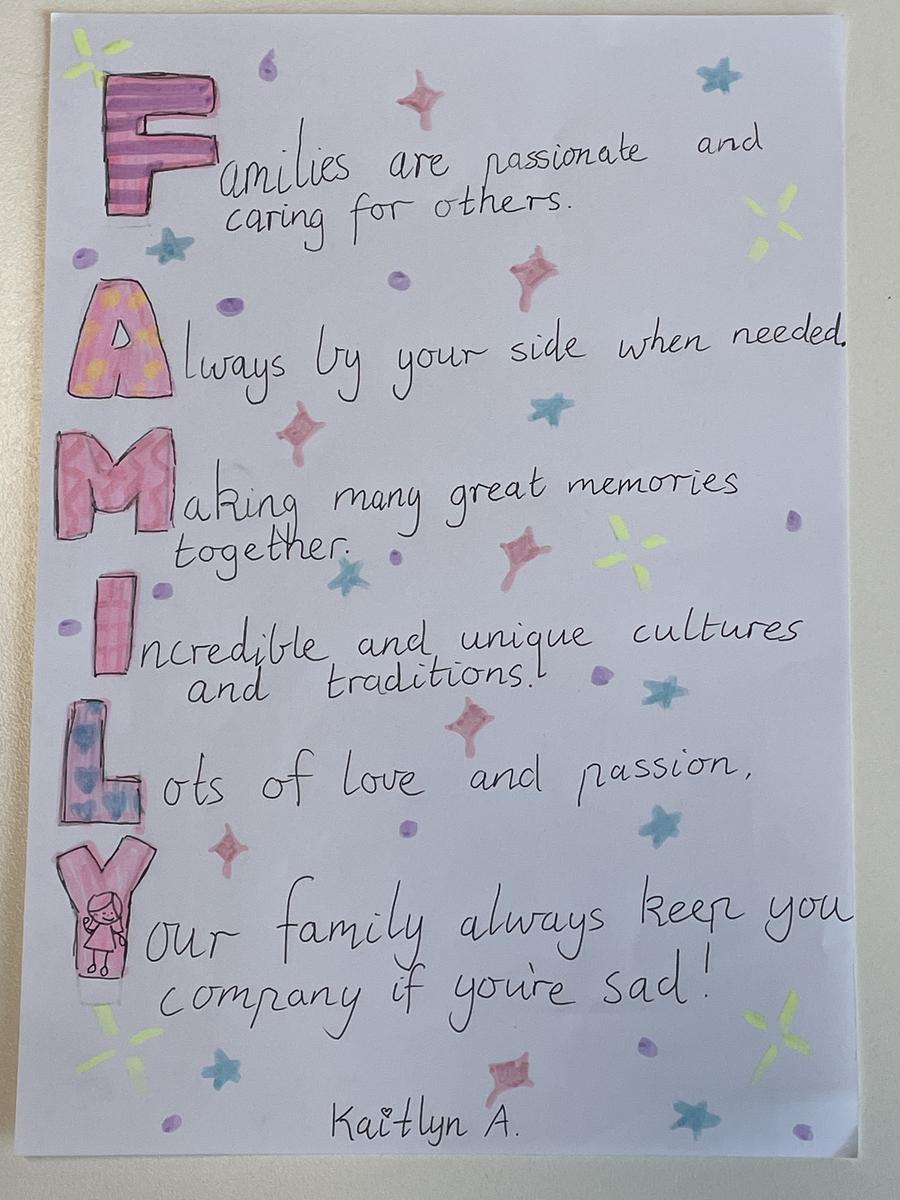 Families are passionate and
caring for others.
Always by your side when needed.
Making many great memories
together.
Incredible and unique cultures
and traditions.
Lots of love and passion,
Your family always keep you
company if you're sad!
Kaitlyn A.